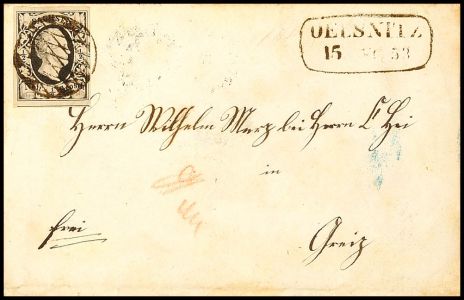 OELSNITZ
15 53
Herrn Wilhelm Merz bei Herrn C Hei
in
frei
Greiz